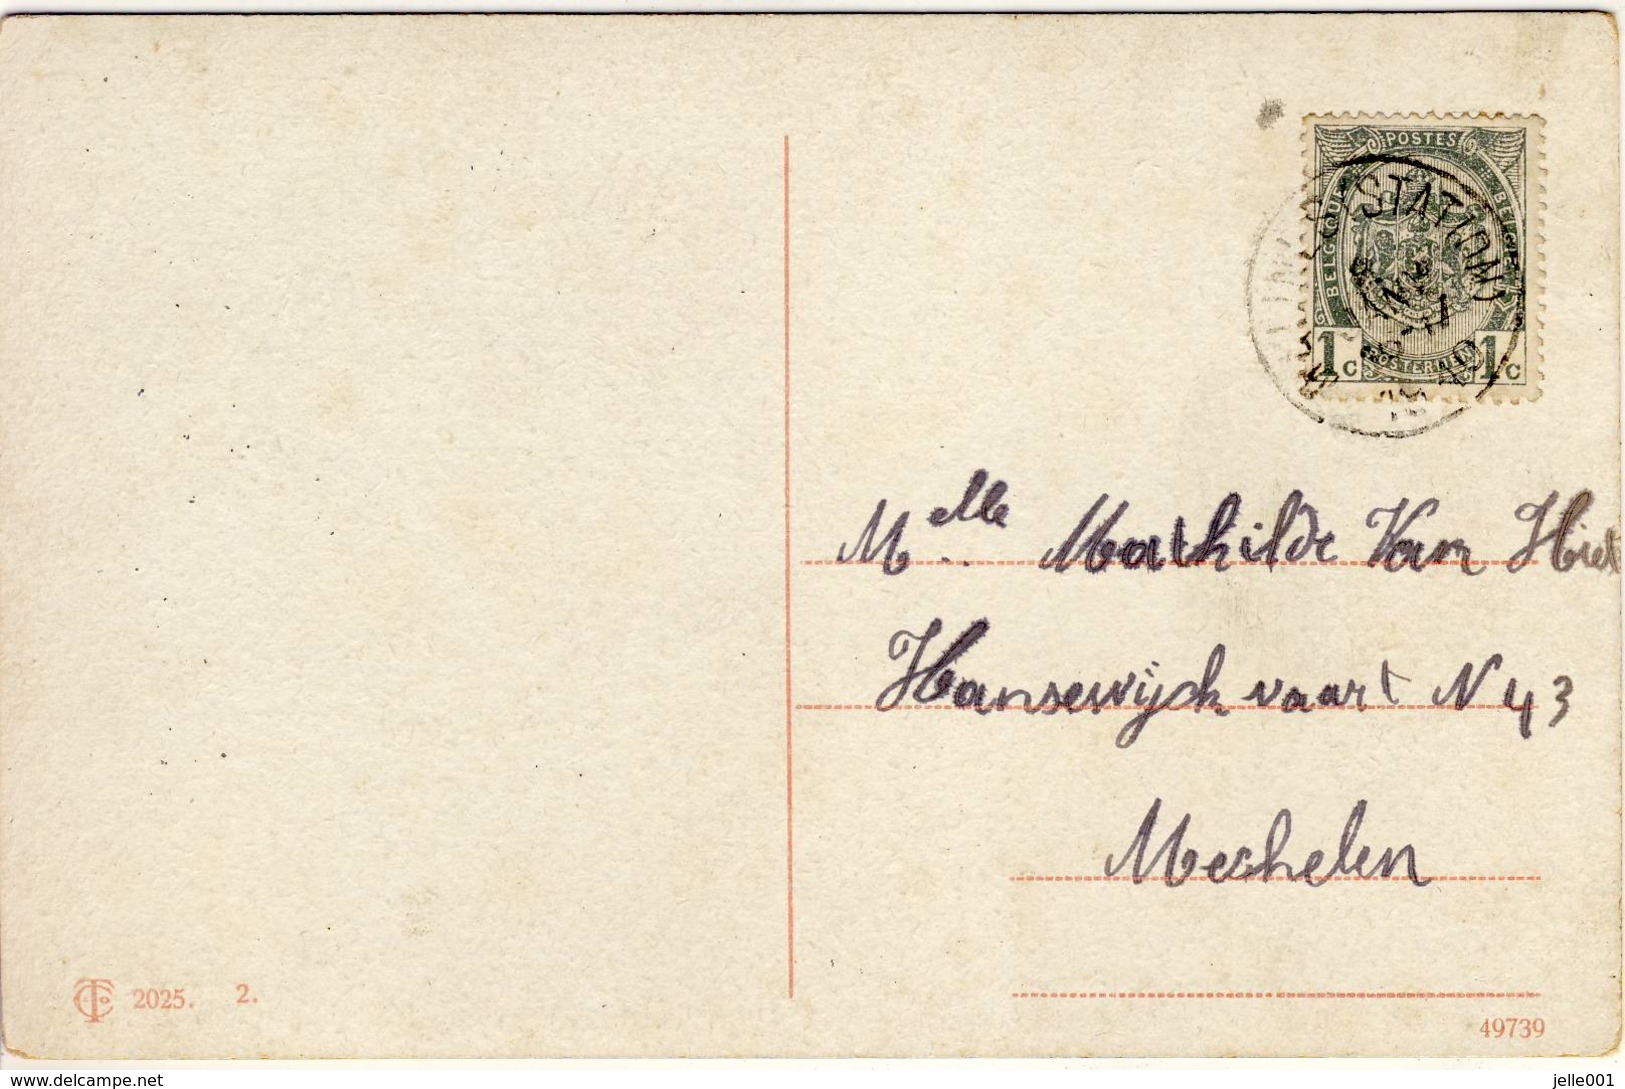 POSTES
BELGIQUE
BELGIE
(STATION)
1c 1c
Melle.. Mathilde Van Hiet
Hanswijck vaart N 43
Mechelen
2025. 2.
49739
www.delcampe.net
jelle001